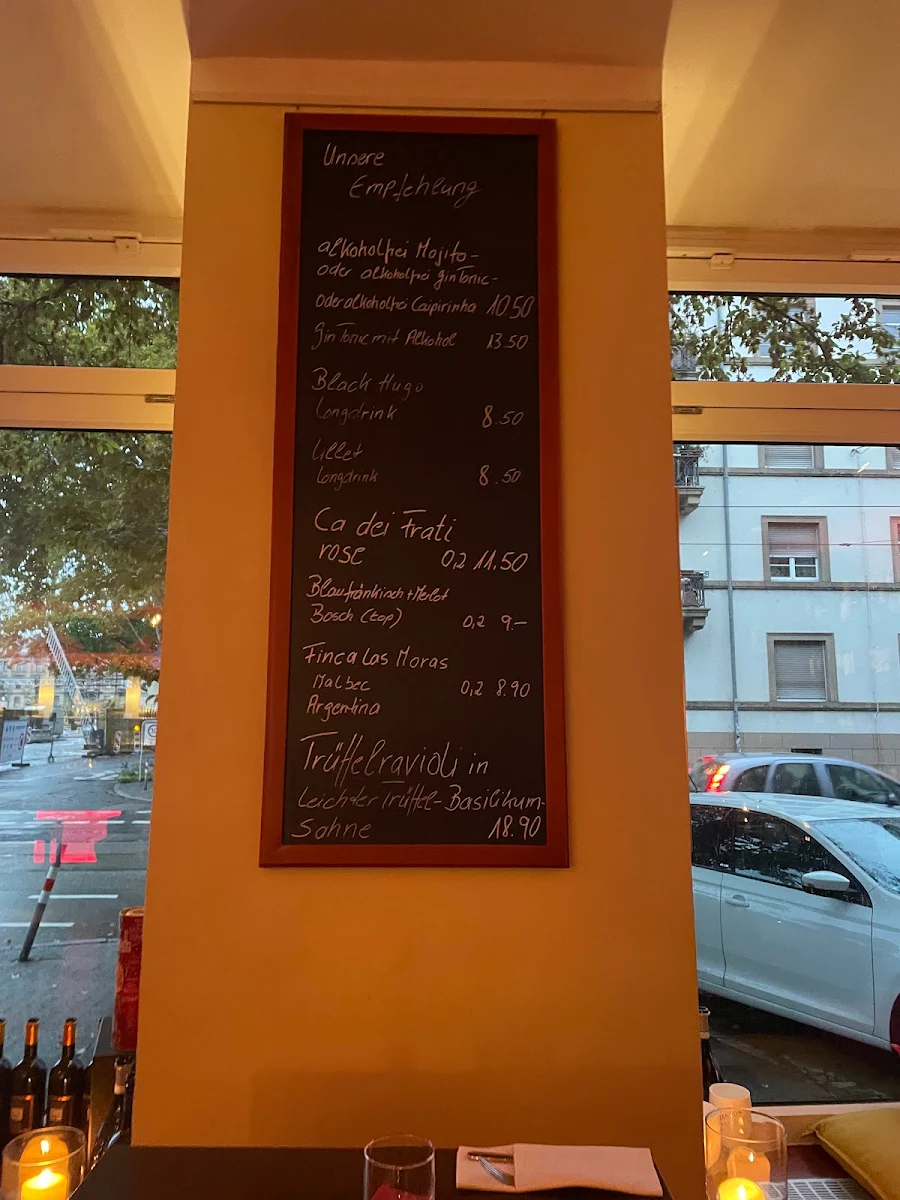 Unsere
Empfehlung
alkoholfrei Mojito-
oder alkoholfrei ginTonic-
oder alkoholfrei Caipirinha 10 50
Gin Tonic mit Alkohol 13.50
Black Hugo
Longdrink 8.50
Lillet
Longdrink 8.50
Ca dei Frati
rose 0,2 11.50
Blaufränkisch + Merlot
Bosch (top) 0,2 9.–
Finca Las Moras
Malbec 0,2 8.90
Argentina
Trüffelravioli in
Leichter Trüffel-Basilikum-
Sahne 18.90